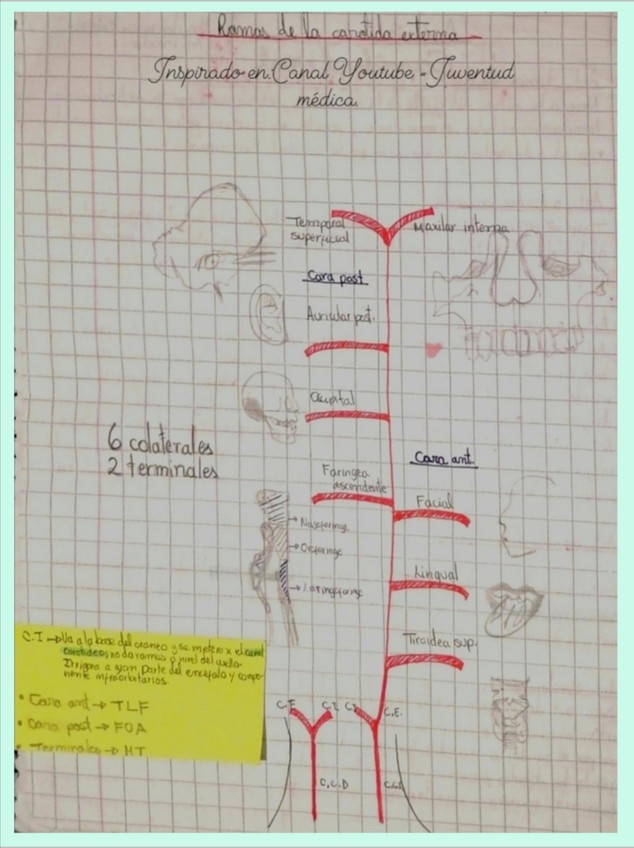 Ramas de la carotida externa
Inspirado en: Canal Youtube - Juventud
médica.
Temporal
superficial
Maxilar interna
Cara post
Auricular post.
Occipital
6 colaterales
2 terminales
Cara ant.
Faringea
ascendente
Facial
Nasofaringe
Orofaringe
Laringofaringe
Lingual
Tiroidea sup.
C.I → Va a la base del craneo y se mete x el canal
carotideo, no da ramas a nivel del cuello.
Irrigan a gran parte del encéfalo y compo-
nente infraorbitarios.
• Cara ant → TLF
• Cara post → FOA
• Terminales → MT
C.E C.I C.I C.E.
C.C.D